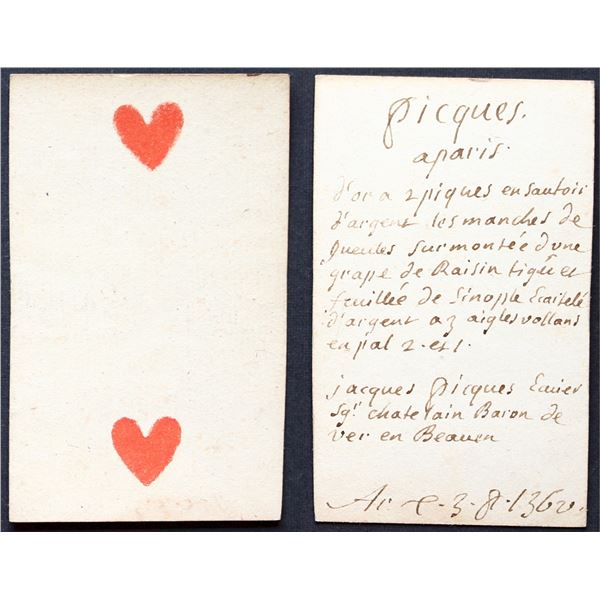 Picques.
a paris.
d'or a 2 piques en sautoir
d'argent les manches de
gueules surmontée d'une
grape de Raisin tigée et
feuillée de Sinople Ecartelé
d'argent a 3 aigles vollans
en pal 2. et 1.
jacques Picques Ecuier
Sgr. chatelain Baron de
ver en